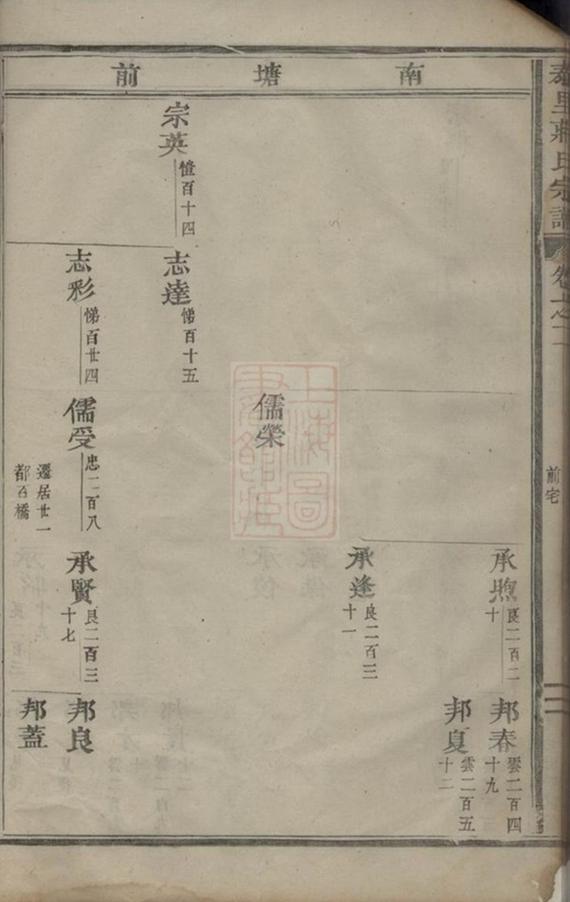 里蔣氏宗譜
卷七之二
前宅
南塘前
承煦
良二百二
十
邦春
雲二百四
十九
邦夏
雲二百五
十二
承逢
良二百三
十一
儒榮
宗英
愷百十四
志達
悌百十五
志彩
悌百廿四
儒受
忠二百八
遷居廿一
都百橋
承賢
良二百三
十七
邦良
邦蓋
上海圖書館藏